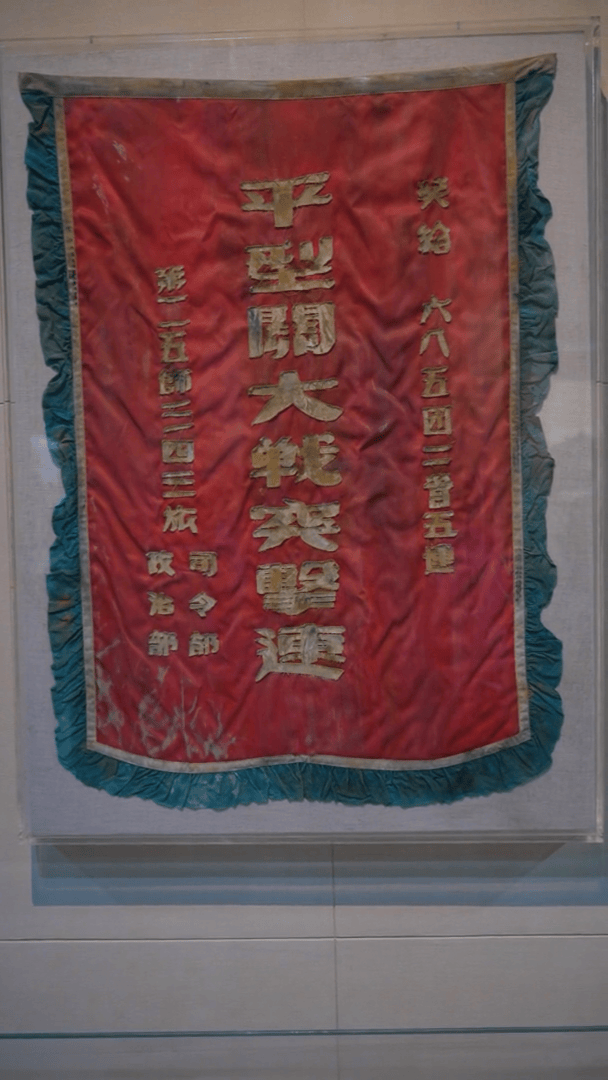 奖给 六八五团二营五連
平型關大战突擊連
第一一五師三四三旅
司令部
政治部